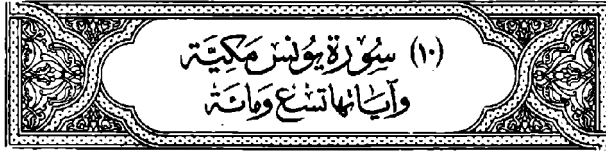 (١٠) سُورَة يُونس مَكيَّة
وَآيَاتهَا تسْع وَمائة